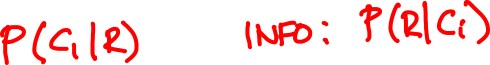 P(C₁|R) INFO: P(R|Cᵢ)